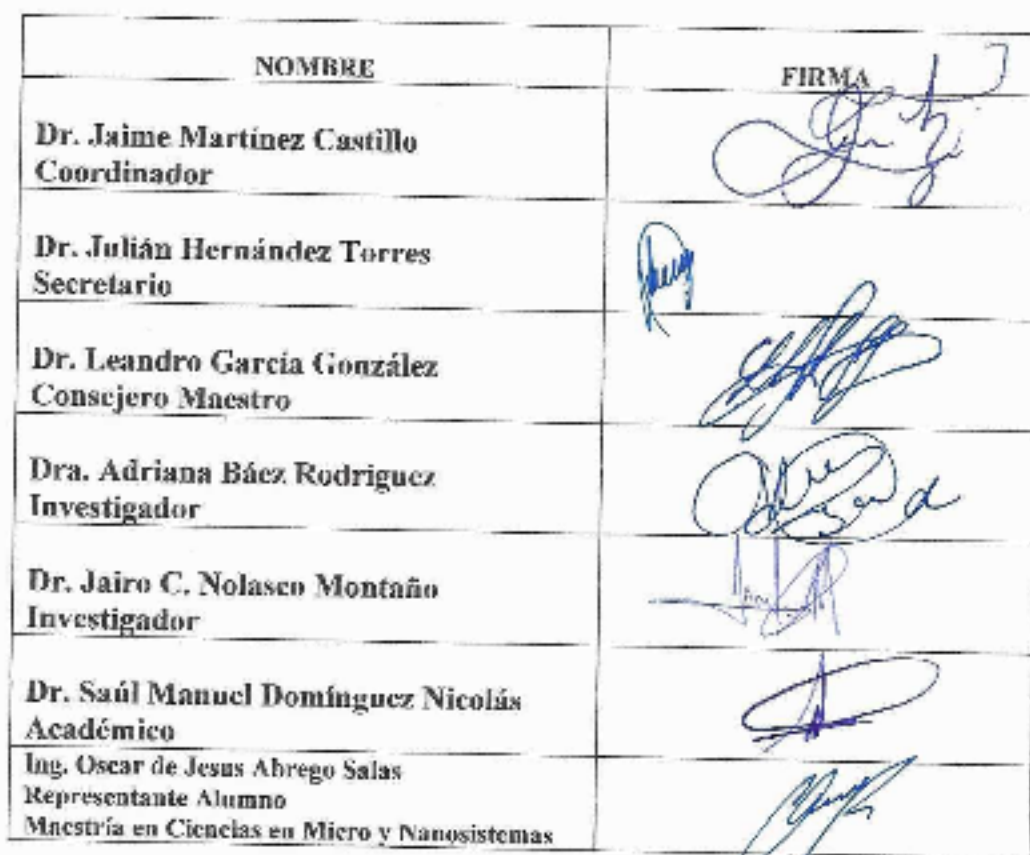 NOMBRE
FIRMA
Dr. Jaime Martínez Castillo
Coordinador
Dr. Julián Hernández Torres
Secretario
Dr. Leandro García González
Consejero Maestro
Dra. Adriana Báez Rodriguez
Investigador
Dr. Jairo C. Nolasco Montaño
Investigador
Dr. Saúl Manuel Domínguez Nicolás
Académico
Ing. Oscar de Jesus Abrego Salas
Representante Alumno
Maestría en Ciencias en Micro y Nanosistemas